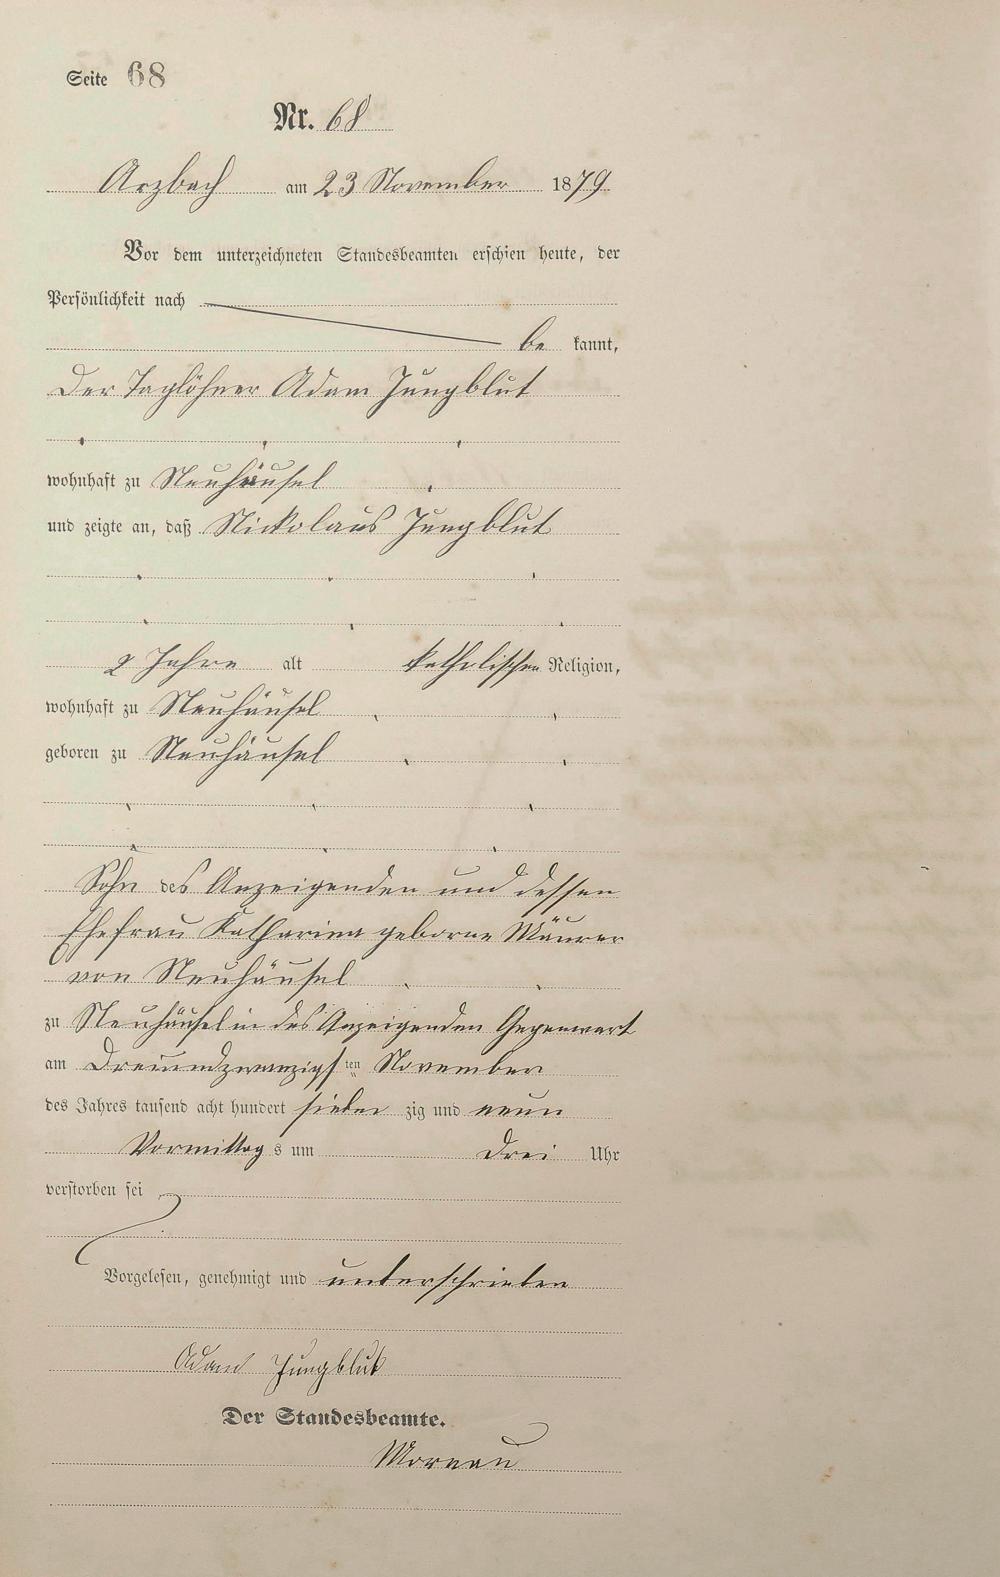 Seite 68
Nr. 68
Arzbach am 23 November 1879.
Vor dem unterzeichneten Standesbeamten erschien heute, der
Persönlichkeit nach
be kannt,
Der Taglöhner Adam Jungblut
wohnhaft zu Neuhäusel
und zeigte an, daß Nickolaus Jungblut
2 Jahre alt katholischen Religion,
wohnhaft zu Neuhäusel
geboren zu Neuhäusel
Sohn des Anzeigenden und dessen
Ehefrau Katharina geborne Mäurer
von Neuhäusel
zu Neuhäusel in des Anzeigenden Gegenwart
am Dreiundzwanzigsten November
des Jahres tausend acht hundert sieben zig und neun
Vormittag s um Drei Uhr
verstorben sei
Vorgelesen, genehmigt und unterschrieben
Adam Jungblut
Der Standesbeamte.
Moreau